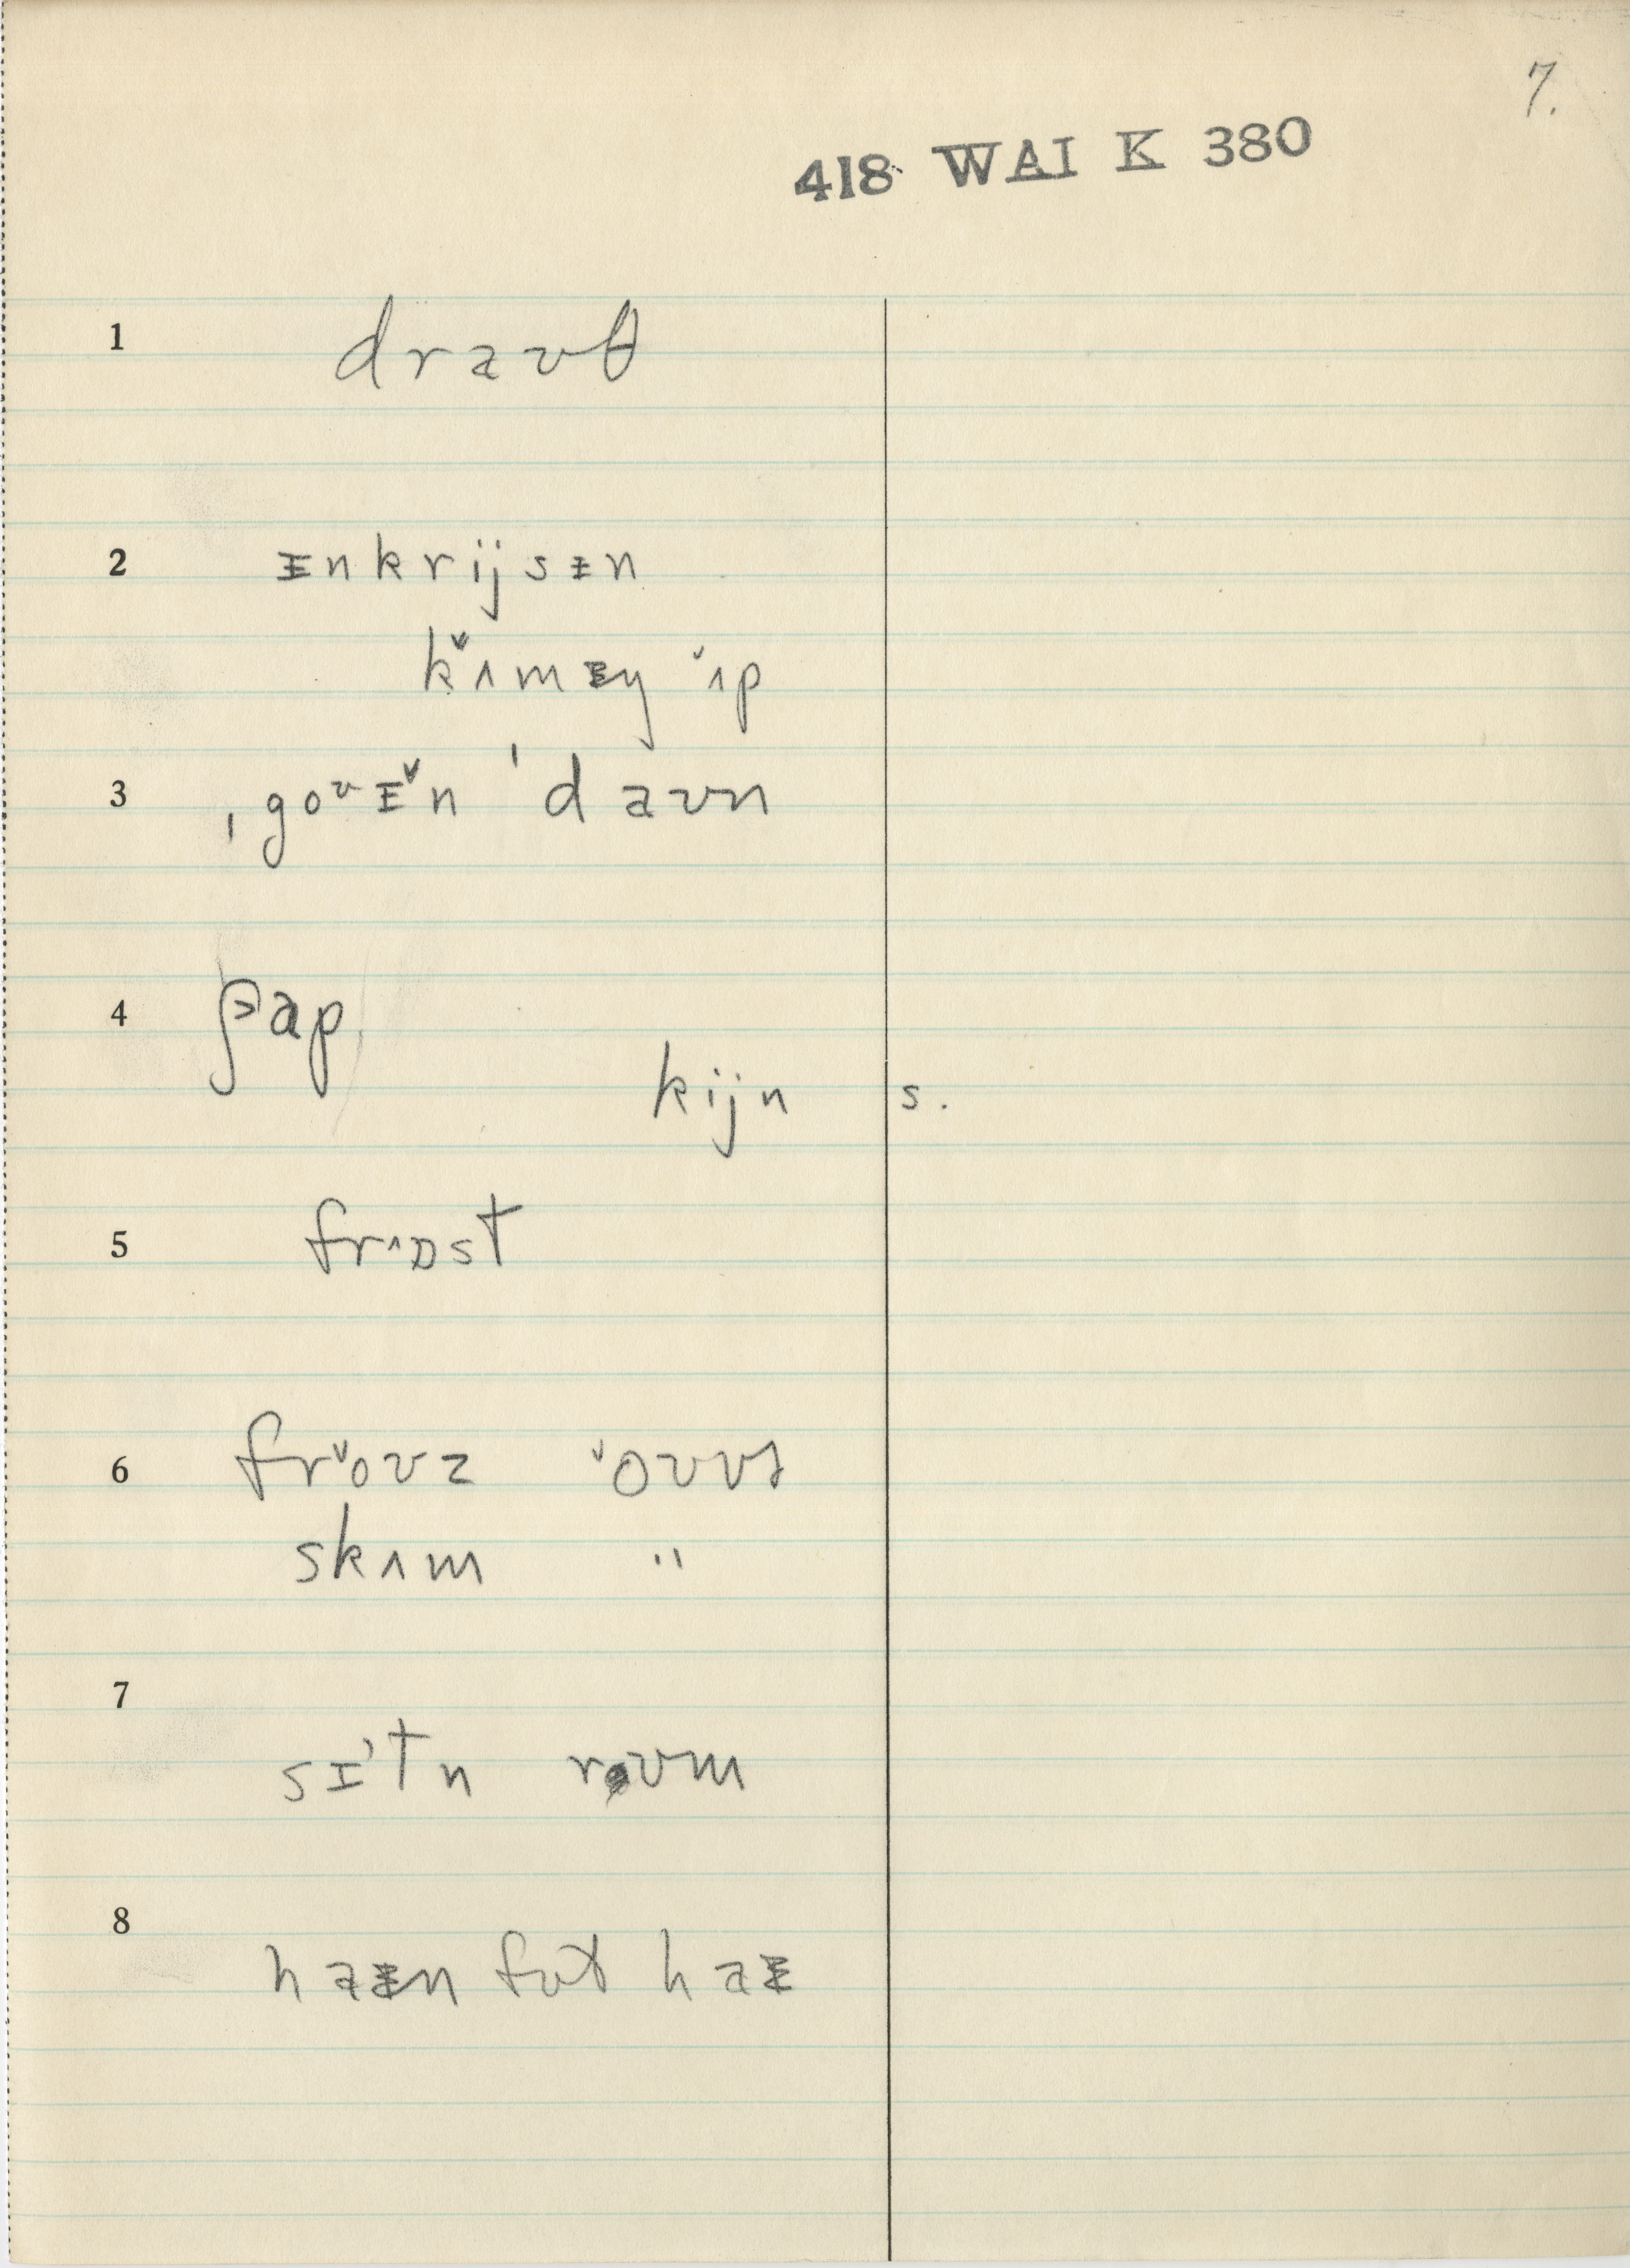 7.
418 WAI K 380
1 draʊθ
2 ᵻnkrijsᵻn
kˇʌmᵻŋ ˇʌp
3 ˌgoʊᵻˇn ˈdaʊn
4 ʃap
kijn s.
5 frʌɒst
6 frˇoʊz ˇoʊvɚ
skɪm "
7 sɪˈtn rʊm
8 haᵻn fɚt haᵻ